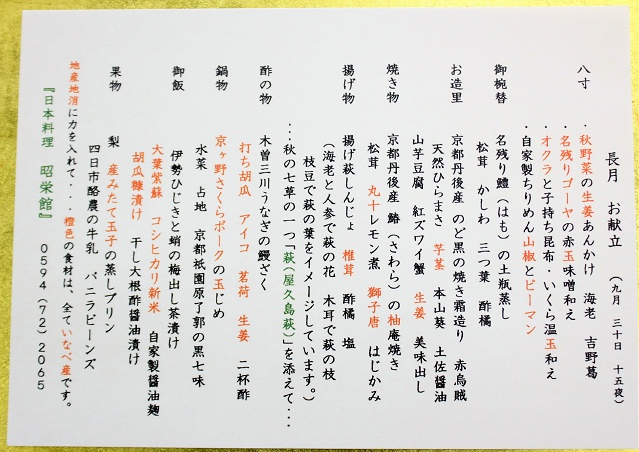 長月　お献立　（九月　三十日　十五夜）
八寸　・秋野菜の生姜あんかけ　海老　吉野葛
・名残りゴーヤの赤玉味噌和え
・オクラと子持ち昆布・いくら温玉和え
・自家製ちりめん山椒とピーマン
御椀替　名残り鱧（はも）の土瓶蒸し
松茸　かしわ　三つ葉　酢橘
お造里　京都丹後産　のど黒の焼き霜造り　赤烏賊
天然ひらまさ　芋茎　本山葵　土佐醤油
山芋豆腐　紅ズワイ蟹　生姜　美味出し
焼き物　京都丹後産　鰆（さわら）の柚庵焼き
松茸　丸十レモン煮　獅子唐　はじかみ
揚げ物　揚げ萩しんじょ　椎茸　酢橘　塩
（海老と人参で萩の花　木耳で萩の枝
枝豆で萩の葉をイメージしています。）
・・・秋の七草の一つ「萩（屋久島萩）」を添えて・・・
酢の物　木曽三川うなぎの鰻ざく
打ち胡瓜　アイコ　茗荷　生姜　二杯酢
鍋物　京ヶ野さくらポークの玉じめ
水菜　占地　京都祇園原了郭の黒七味
御飯　伊勢ひじきと蛸の梅出し茶漬け
大葉紫蘇　コシヒカリ新米　自家製醤油麹
胡瓜糠漬け　干し大根酢醤油漬け
果物　梨　産みたて玉子の蒸しプリン
四日市酪農の牛乳　バニラビーンズ
地産地消に力を入れて・・・橙色の食材は、全ていなべ産です。
『日本料理　昭栄館』　０５９４（７２）２０６５